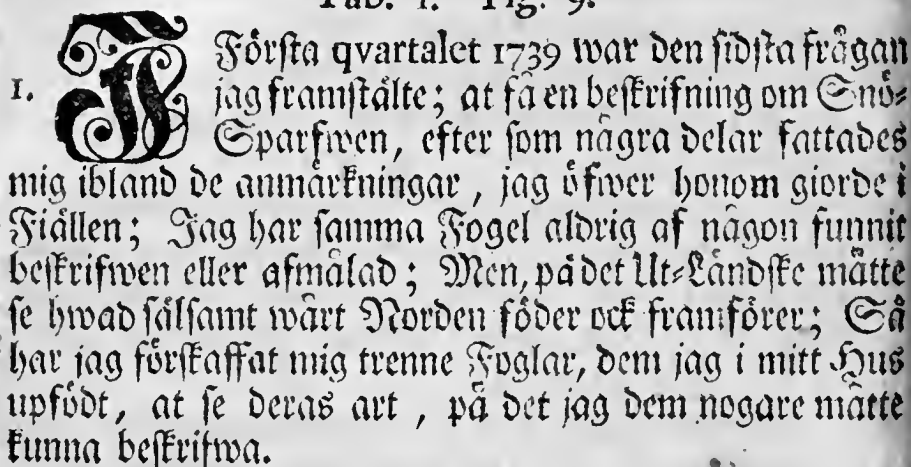 Tab. 1. Fig. 9.
I Första qvartalet 1739 war den sidsta frågan
1. jag framstälte; at få en beskrifning om Snö-
Sparfwen, efter som några delar fattades
mig ibland de anmärkningar, jag öfwer honom giorde i
Fiällen; Jag har samma Fogel aldrig af någon funnit
beskrifwen eller afmålad; Men, på det Ut-Ländske måtte
se hwad sälsamt wårt Norden föder ock framförer; Så
har jag förskaffat mig trenne Foglar, dem jag i mitt Hus
upfödt, at se deras art, på det jag dem nogare måtte
kunna beskrifwa.